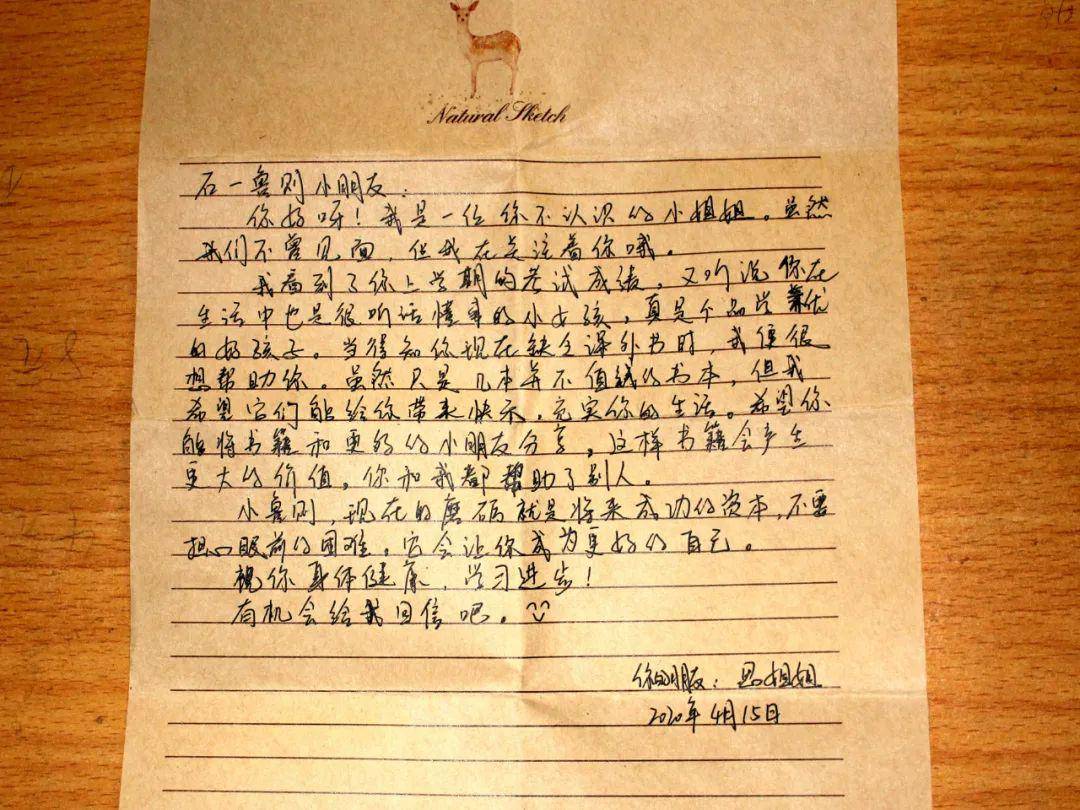 Natural Sketch
石一鲁则小朋友：
你好呀！我是一位你不认识的小姐姐。虽然
我们不曾见面，但我在关注着你哦。
我看到了你上学期的考试成绩，又听说你在
生活中也是很听话懂事的小女孩，真是个品学兼优
的好孩子。当得知你现在缺乏课外书时，我便很
想帮助你。虽然只是几本并不值钱的书本，但我
希望它们能给你带来快乐，充实你的生活。希望你
能将书籍和更多的小朋友分享，这样书籍会产生
更大的价值，你和我都帮助了别人。
小鲁则，现在的磨砺就是将来成功的资本，不要
担心眼前的困难，它会让你成为更好的自己。
祝你身体健康，学习进步！
有机会给我回信吧。
你的朋友：思姐姐
2020年4月15日